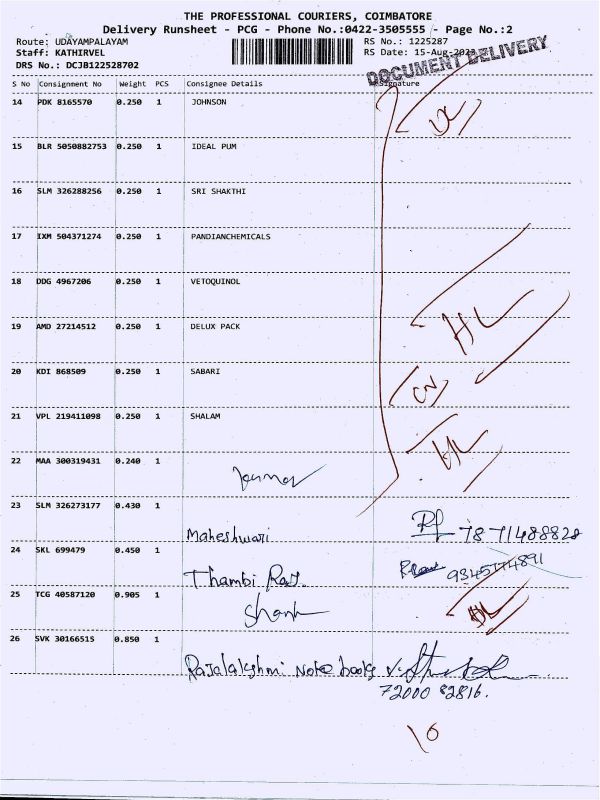 THE PROFESSIONAL COURIERS, COIMBATORE
Delivery Runsheet - PCG - Phone No.:0422-3505555 - Page No.:2
Route: UDAYAMPALAYAM RS No.: 1225287
Staff: KATHIRVEL RS Date: 15-Aug-2023
DRS No.: DCJB122528702
DOCUMENT DELIVERY
S No Consignment No Weight PCS Consignee Details Signature
14 PDK 8165570 0.250 1 JOHNSON
15 BLR 5050882753 0.250 1 IDEAL PUM
16 SLM 326288256 0.250 1 SRI SHAKTHI
17 IXM 504371274 0.250 1 PANDIANCHEMICALS
18 DDG 4967206 0.250 1 VETOQUINOL
19 AMD 27214512 0.250 1 DELUX PACK
20 KDI 868509 0.250 1 SABARI
21 VPL 219411098 0.250 1 SHALAM
22 MAA 300319431 0.240 1
23 SLM 326273177 0.430 1
Maheshwari 7871488828
24 SKL 699479 0.450 1
Thambi Raj.
25 TCG 40587120 0.905 1
26 SVK 3016651S 0.850 1
Rajalakshmi Note books
72000 82816.
10